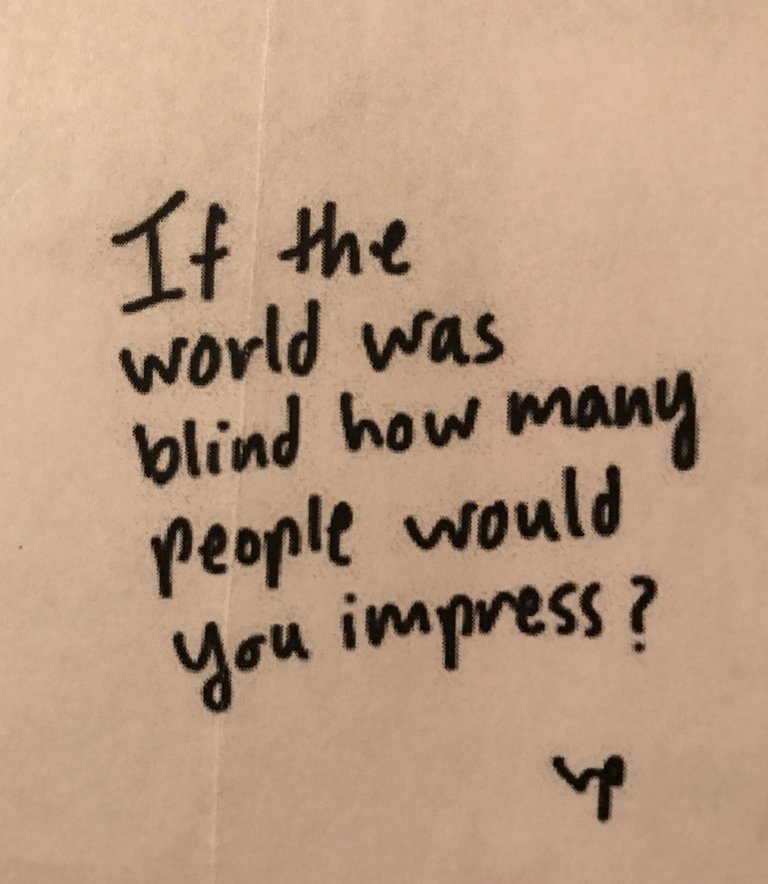 If the
world was
blind how many
people would
you impress?